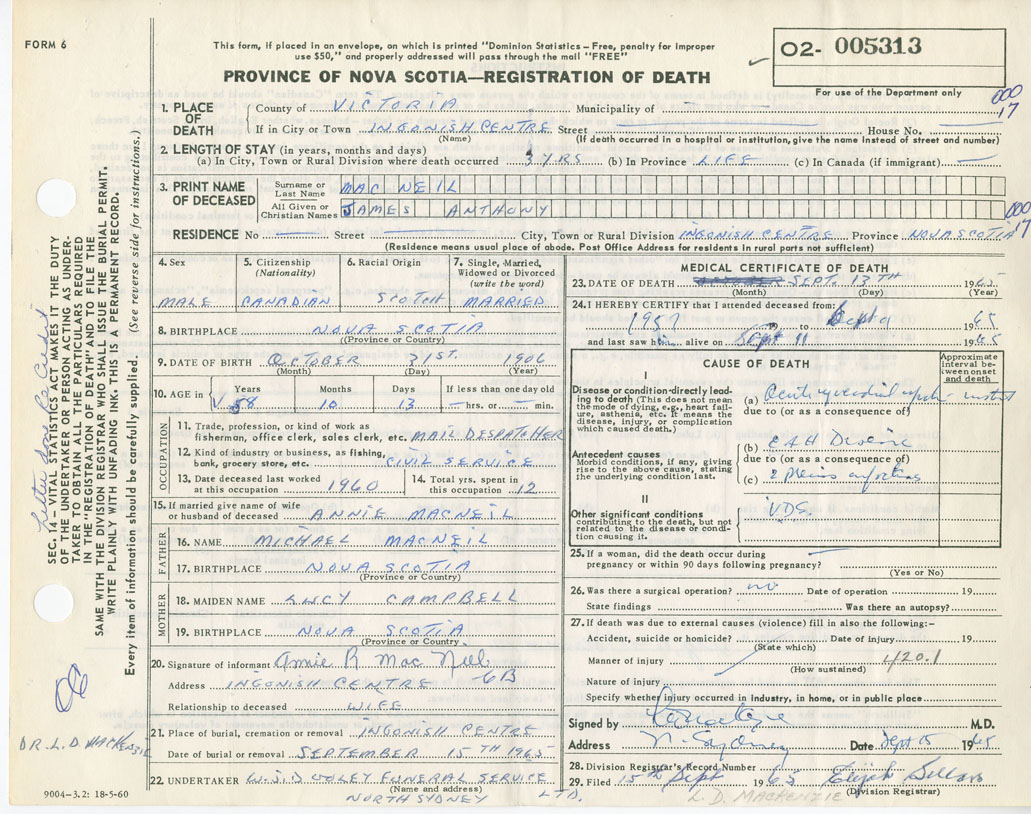 FORM 6
This form, if placed in an envelope, on which is printed "Dominion Statistics – Free, penalty for improper
use $50," and properly addressed will pass through the mail "FREE"
O2- 005313
PROVINCE OF NOVA SCOTIA—REGISTRATION OF DEATH
For use of the Department only
000
17
1. PLACE OF DEATH
County of VICTORIA Municipality of
If in City or Town INGONISH CENTRE Street House No.
(Name) (If death occurred in a hospital or institution, give the name instead of street and number)
2. LENGTH OF STAY (in years, months and days)
(a) In City, Town or Rural Division where death occurred 3 YRS (b) In Province LIFE (c) In Canada (if immigrant) —
3. PRINT NAME OF DECEASED
Surname or Last Name MAC NEIL
All Given or Christian Names JAMES ANTHONY
000
17
RESIDENCE No — Street — City, Town or Rural Division INGONISH CENTRE Province NOVA SCOTIA
(Residence means usual place of abode. Post Office Address for residents in rural parts not sufficient)
4. Sex
MALE
5. Citizenship (Nationality)
CANADIAN
6. Racial Origin
SCOTCH
7. Single, Married, Widowed or Divorced (write the word)
MARRIED
8. BIRTHPLACE NOVA SCOTIA
(Province or Country)
9. DATE OF BIRTH OCTOBER 31ST. 1906
(Month) (Day) (Year)
10. AGE in
Years Months Days If less than one day old
58 10 13 — hrs. or — min.
OCCUPATION
11. Trade, profession, or kind of work as
fisherman, office clerk, sales clerk, etc. MAIL DESPATCHER
12. Kind of industry or business, as fishing,
bank, grocery store, etc. CIVIL SERVICE
13. Date deceased last worked
at this occupation 1960
14. Total yrs. spent in
this occupation 12
15. If married give name of wife
or husband of deceased ANNIE MACNEIL
FATHER
16. NAME MICHAEL MACNEIL
17. BIRTHPLACE NOVA SCOTIA
(Province or Country)
MOTHER
18. MAIDEN NAME LUCY CAMPBELL
19. BIRTHPLACE NOVA SCOTIA
(Province or Country)
20. Signature of informant Annie R Mac Neil
6B
Address INGONISH CENTRE
Relationship to deceased WIFE
21. Place of burial, cremation or removal INGONISH CENTRE
Date of burial or removal SEPTEMBER 15TH 1965
22. UNDERTAKER FUNERAL SERVICE LTD.
(Name and address)
NORTH SYDNEY
9004-3.2: 18-5-60
MEDICAL CERTIFICATE OF DEATH
23. DATE OF DEATH SEPT. 13TH 1965
(Month) (Day) (Year)
24. I HEREBY CERTIFY that I attended deceased from:
195? 19 to Sept 9 1965
and last saw him alive on Sept 11 1965
CAUSE OF DEATH
Approximate interval between onset and death
I
Disease or condition directly leading to death (This does not mean the mode of dying, e.g., heart failure, asthenia, etc. It means the disease, injury, or complication which caused death.)
(a)
due to (or as a consequence of)
Antecedent causes
Morbid conditions, if any, giving rise to the above cause, stating the underlying condition last.
(b)
due to (or as a consequence of)
(c)
II
Other significant conditions
contributing to the death, but not related to the disease or condition causing it.
25. If a woman, did the death occur during
pregnancy or within 90 days following pregnancy? —
(Yes or No)
26. Was there a surgical operation? no Date of operation 19
State findings Was there an autopsy?
27. If death was due to external causes (violence) fill in also the following:–
Accident, suicide or homicide? Date of injury 19
(State which)
Manner of injury 420.1
(How sustained)
Nature of injury
Specify whether injury occurred in industry, in home, or in public place
Signed by M.D.
Address N. Sydney Date Sept 15 1965
28. Division Registrar's Record Number
29. Filed 15th Sept 1965 Elijah
(Division Registrar)
L. D. MACKENZIE
SEC. 14—VITAL STATISTICS ACT MAKES IT THE DUTY
OF THE UNDERTAKER OR PERSON ACTING AS UNDER-
TAKER TO OBTAIN ALL THE PARTICULARS REQUIRED
IN THE "REGISTRATION OF DEATH" AND TO FILE THE
SAME WITH THE DIVISION REGISTRAR WHO SHALL ISSUE THE BURIAL PERMIT.
WRITE PLAINLY WITH UNFADING INK. THIS IS A PERMANENT RECORD.
Every item of information should be carefully supplied. (See reverse side for instructions.)
DR. L. D. MACKENZIE